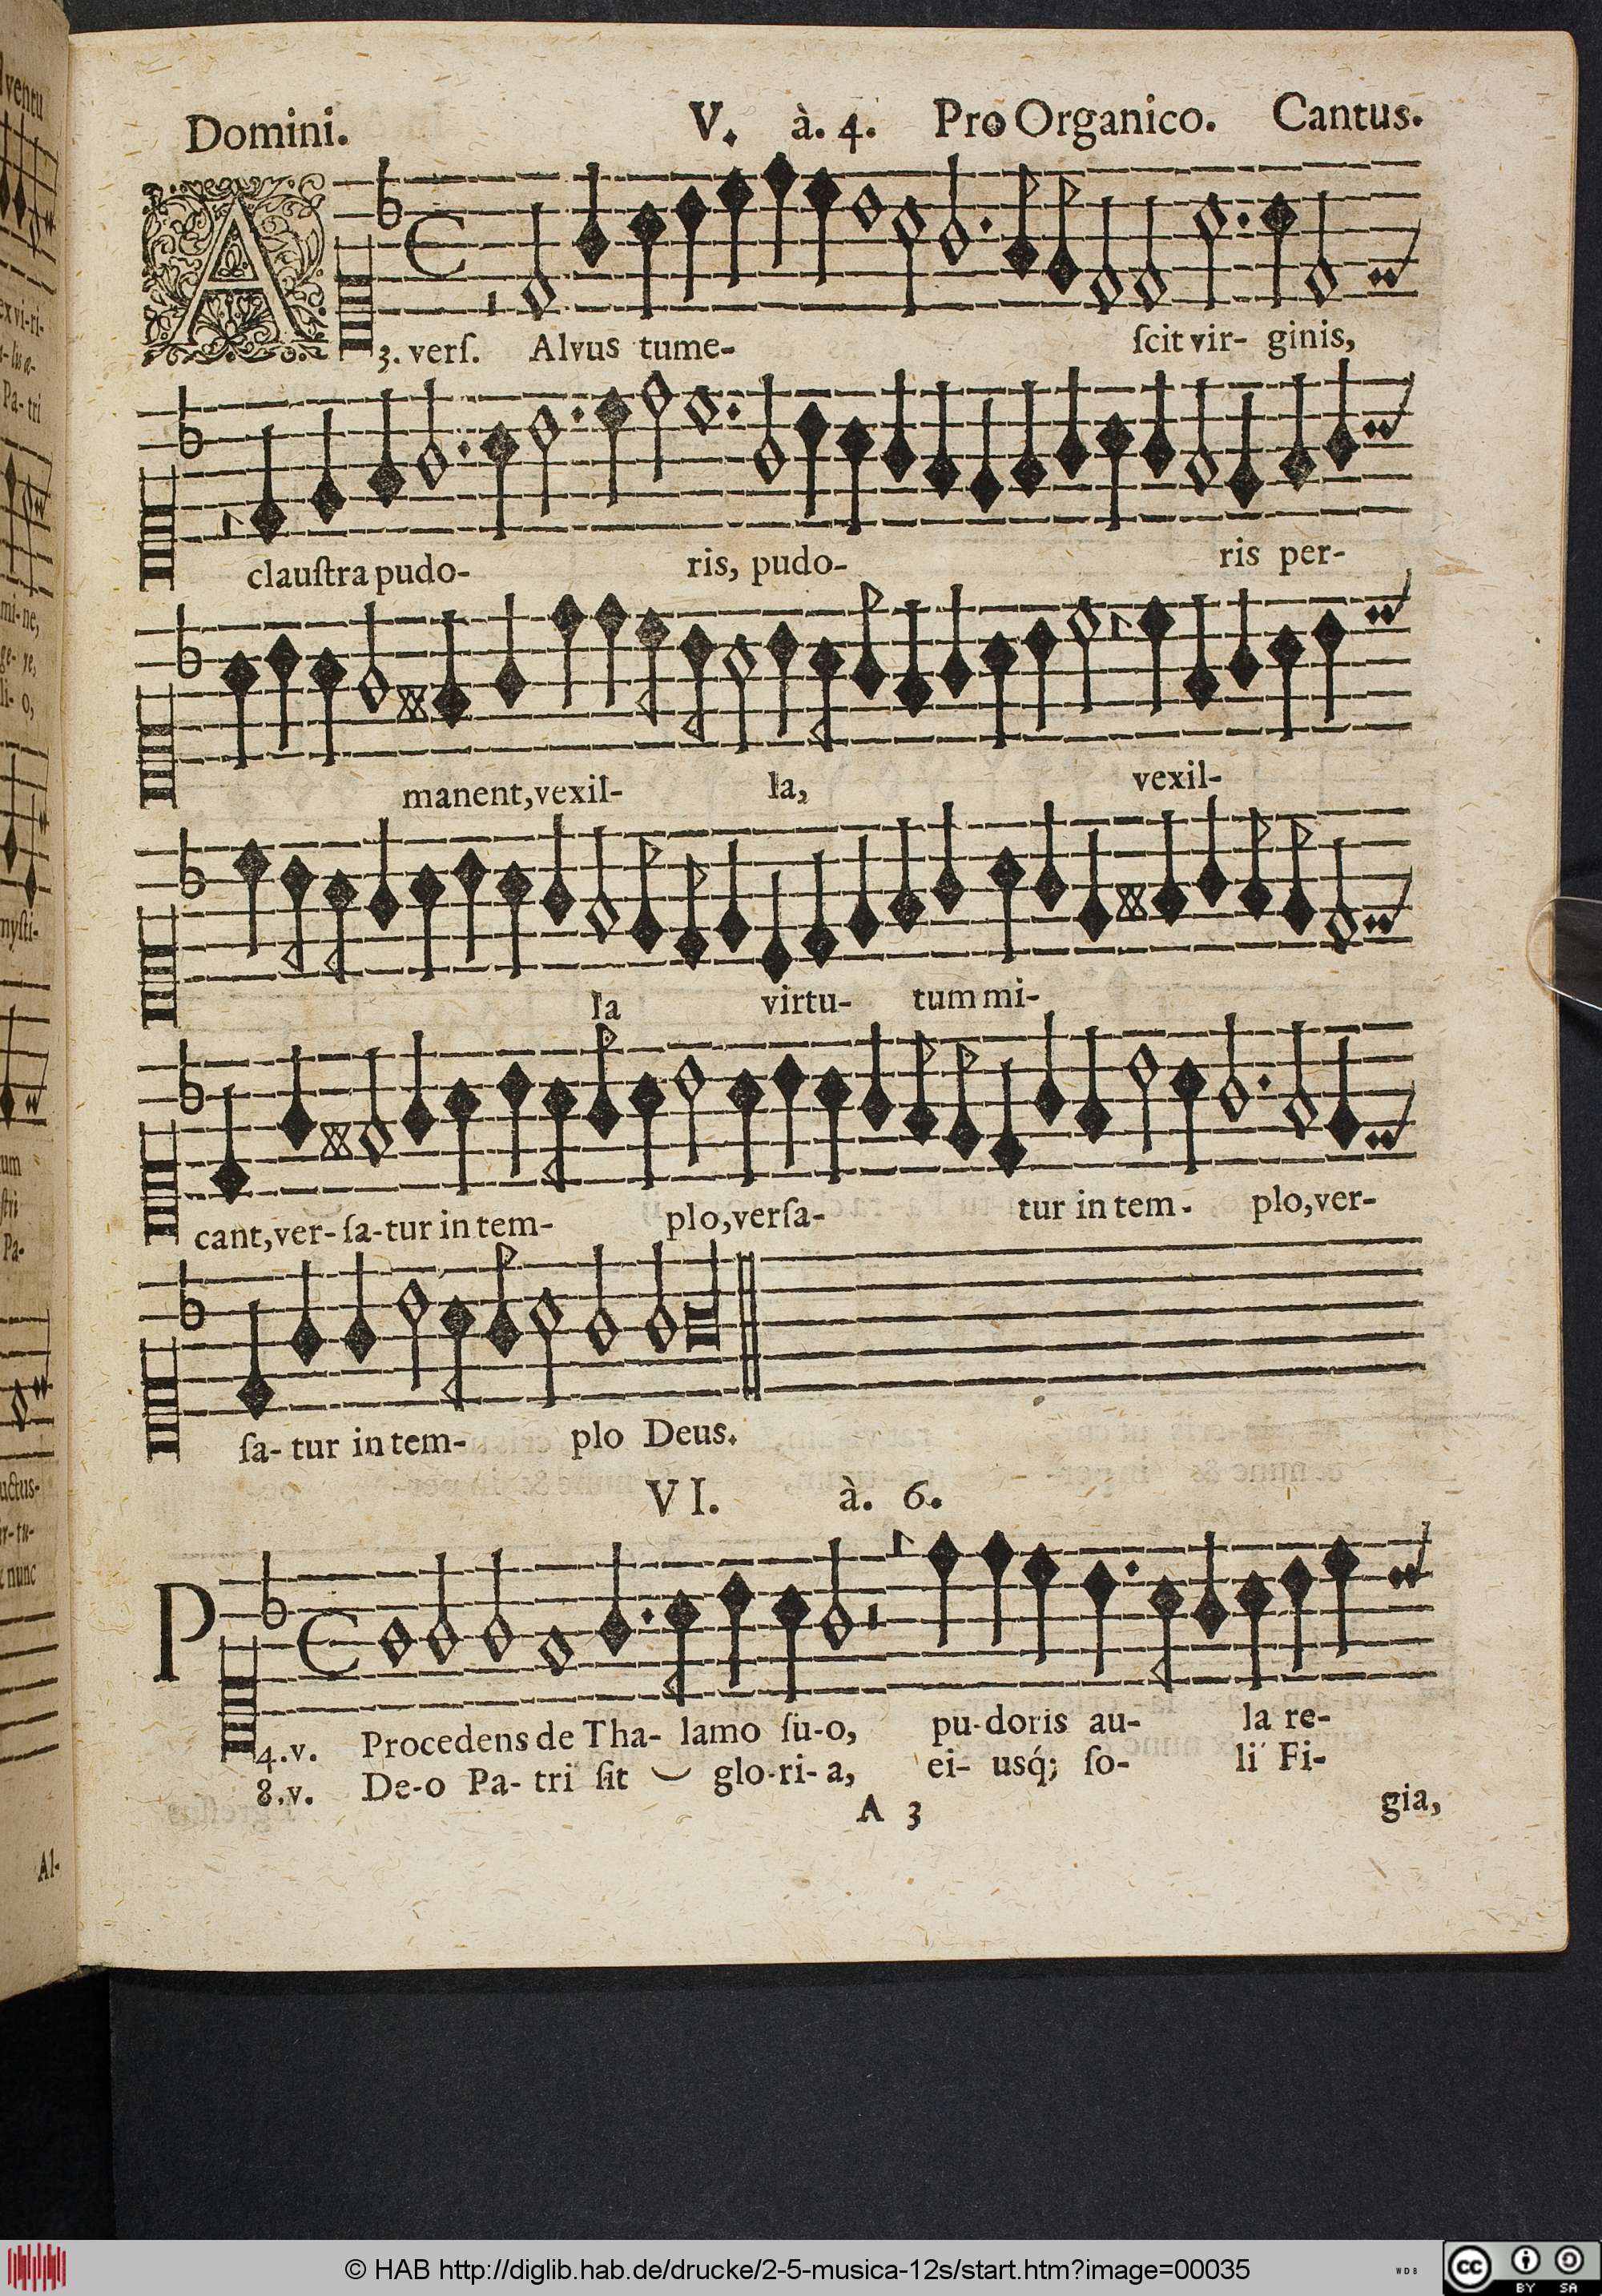 Domini. V. à. 4. Pro Organico. Cantus.
A
3. verſ. Alvus tume- ſcit vir- ginis,
clauſtra pudo- ris, pudo- ris per-
manent, vexil- la, vexil-
la virtu- tum mi-
cant, ver- ſa- tur in tem- plo, verſa- tur in tem- plo, ver-
ſa- tur in tem- plo Deus.
VI. à. 6.
P
4. v. Procedens de Tha- lamo ſu-o, pu-doris au- la re-
8. v. De-o Pa- tri ſit glo-ri-a, ei- usq́; ſo- li Fi-
A 3 gia,
ventu
ex vi-ri-
Pa- tri
mi- ne,
li- o,
myſti-
um
ſtri
Pa-
uctus-
nunc
Al-
© HAB http://diglib.hab.de/drucke/2-5-musica-12s/start.htm?image=00035
WDB
cc BY SA